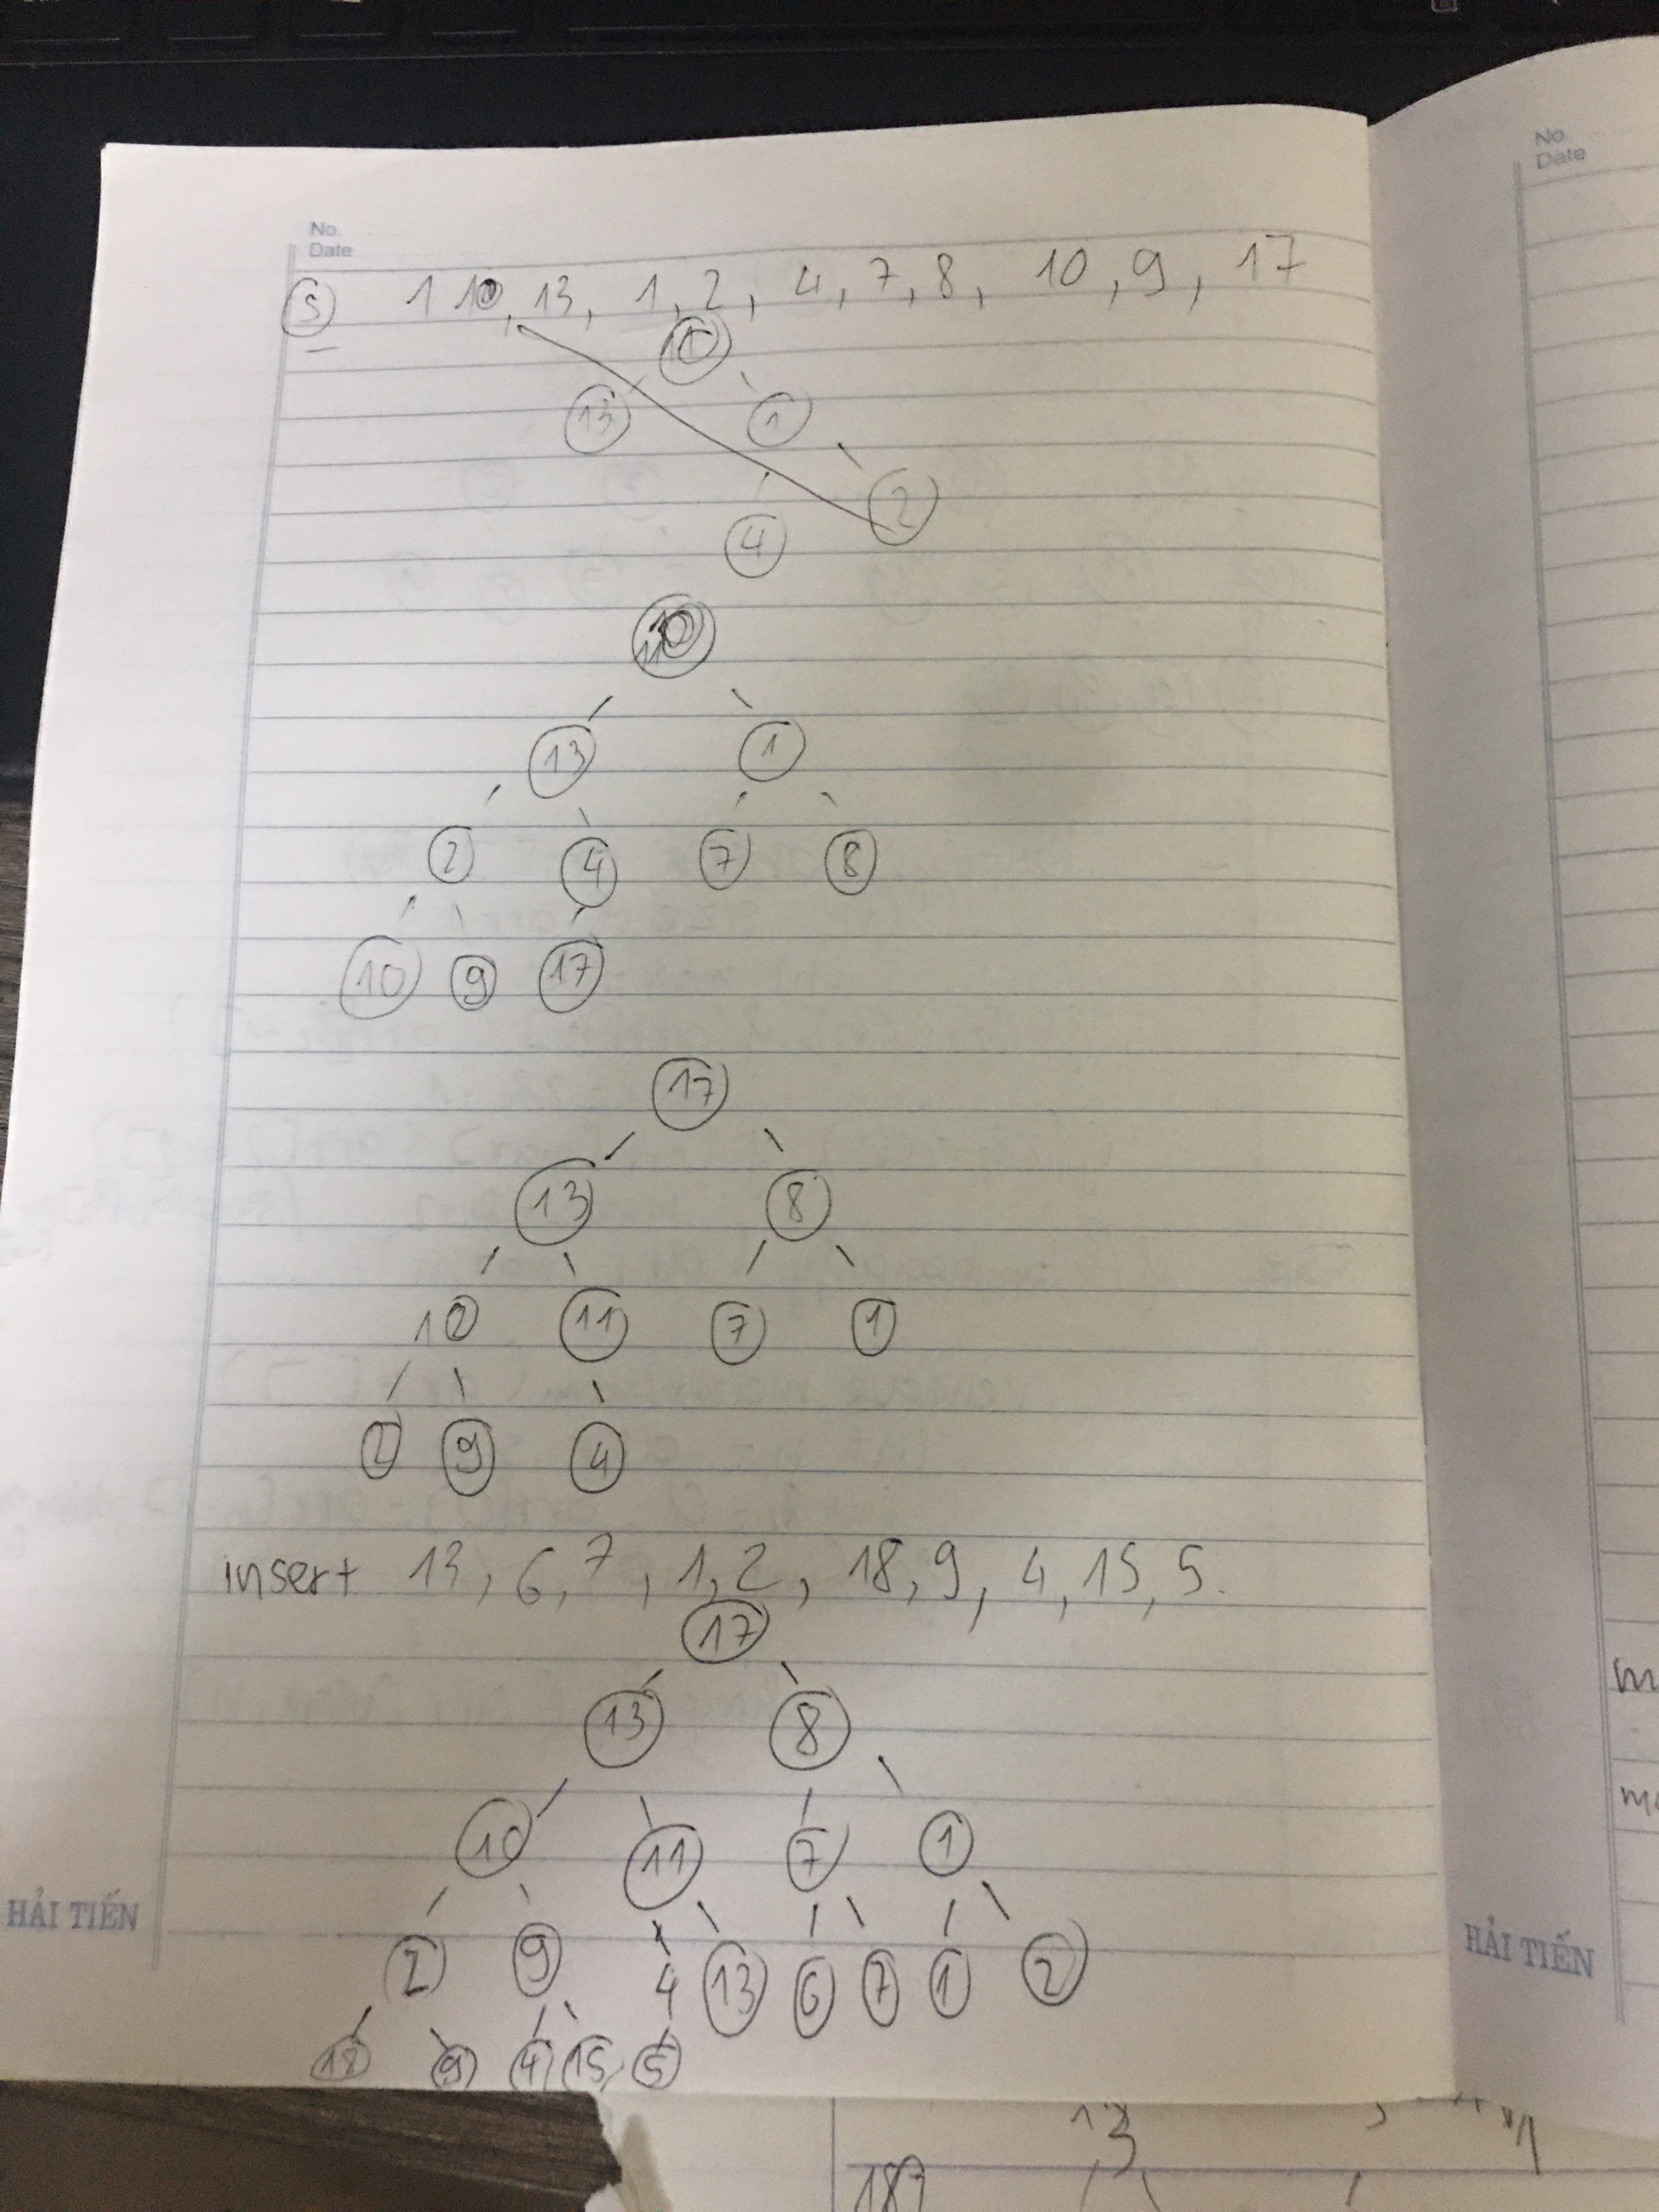 No.
Date
5 11, 13, 1, 2, 4, 7, 8, 10, 9, 17
11
13 1
4 2
11
13 1
2 4 7 8
10 9 17
17
13 8
10 11 7 1
2 9 4
insert 13, 6, 7, 1, 2, 18, 9, 4, 15, 5.
17
13 8
10 11 7 1
2 9 4 13 6 7 1 2
18 9 4 15 5
HẢI TIẾN
No.
Date
HẢI TIẾN
13
187